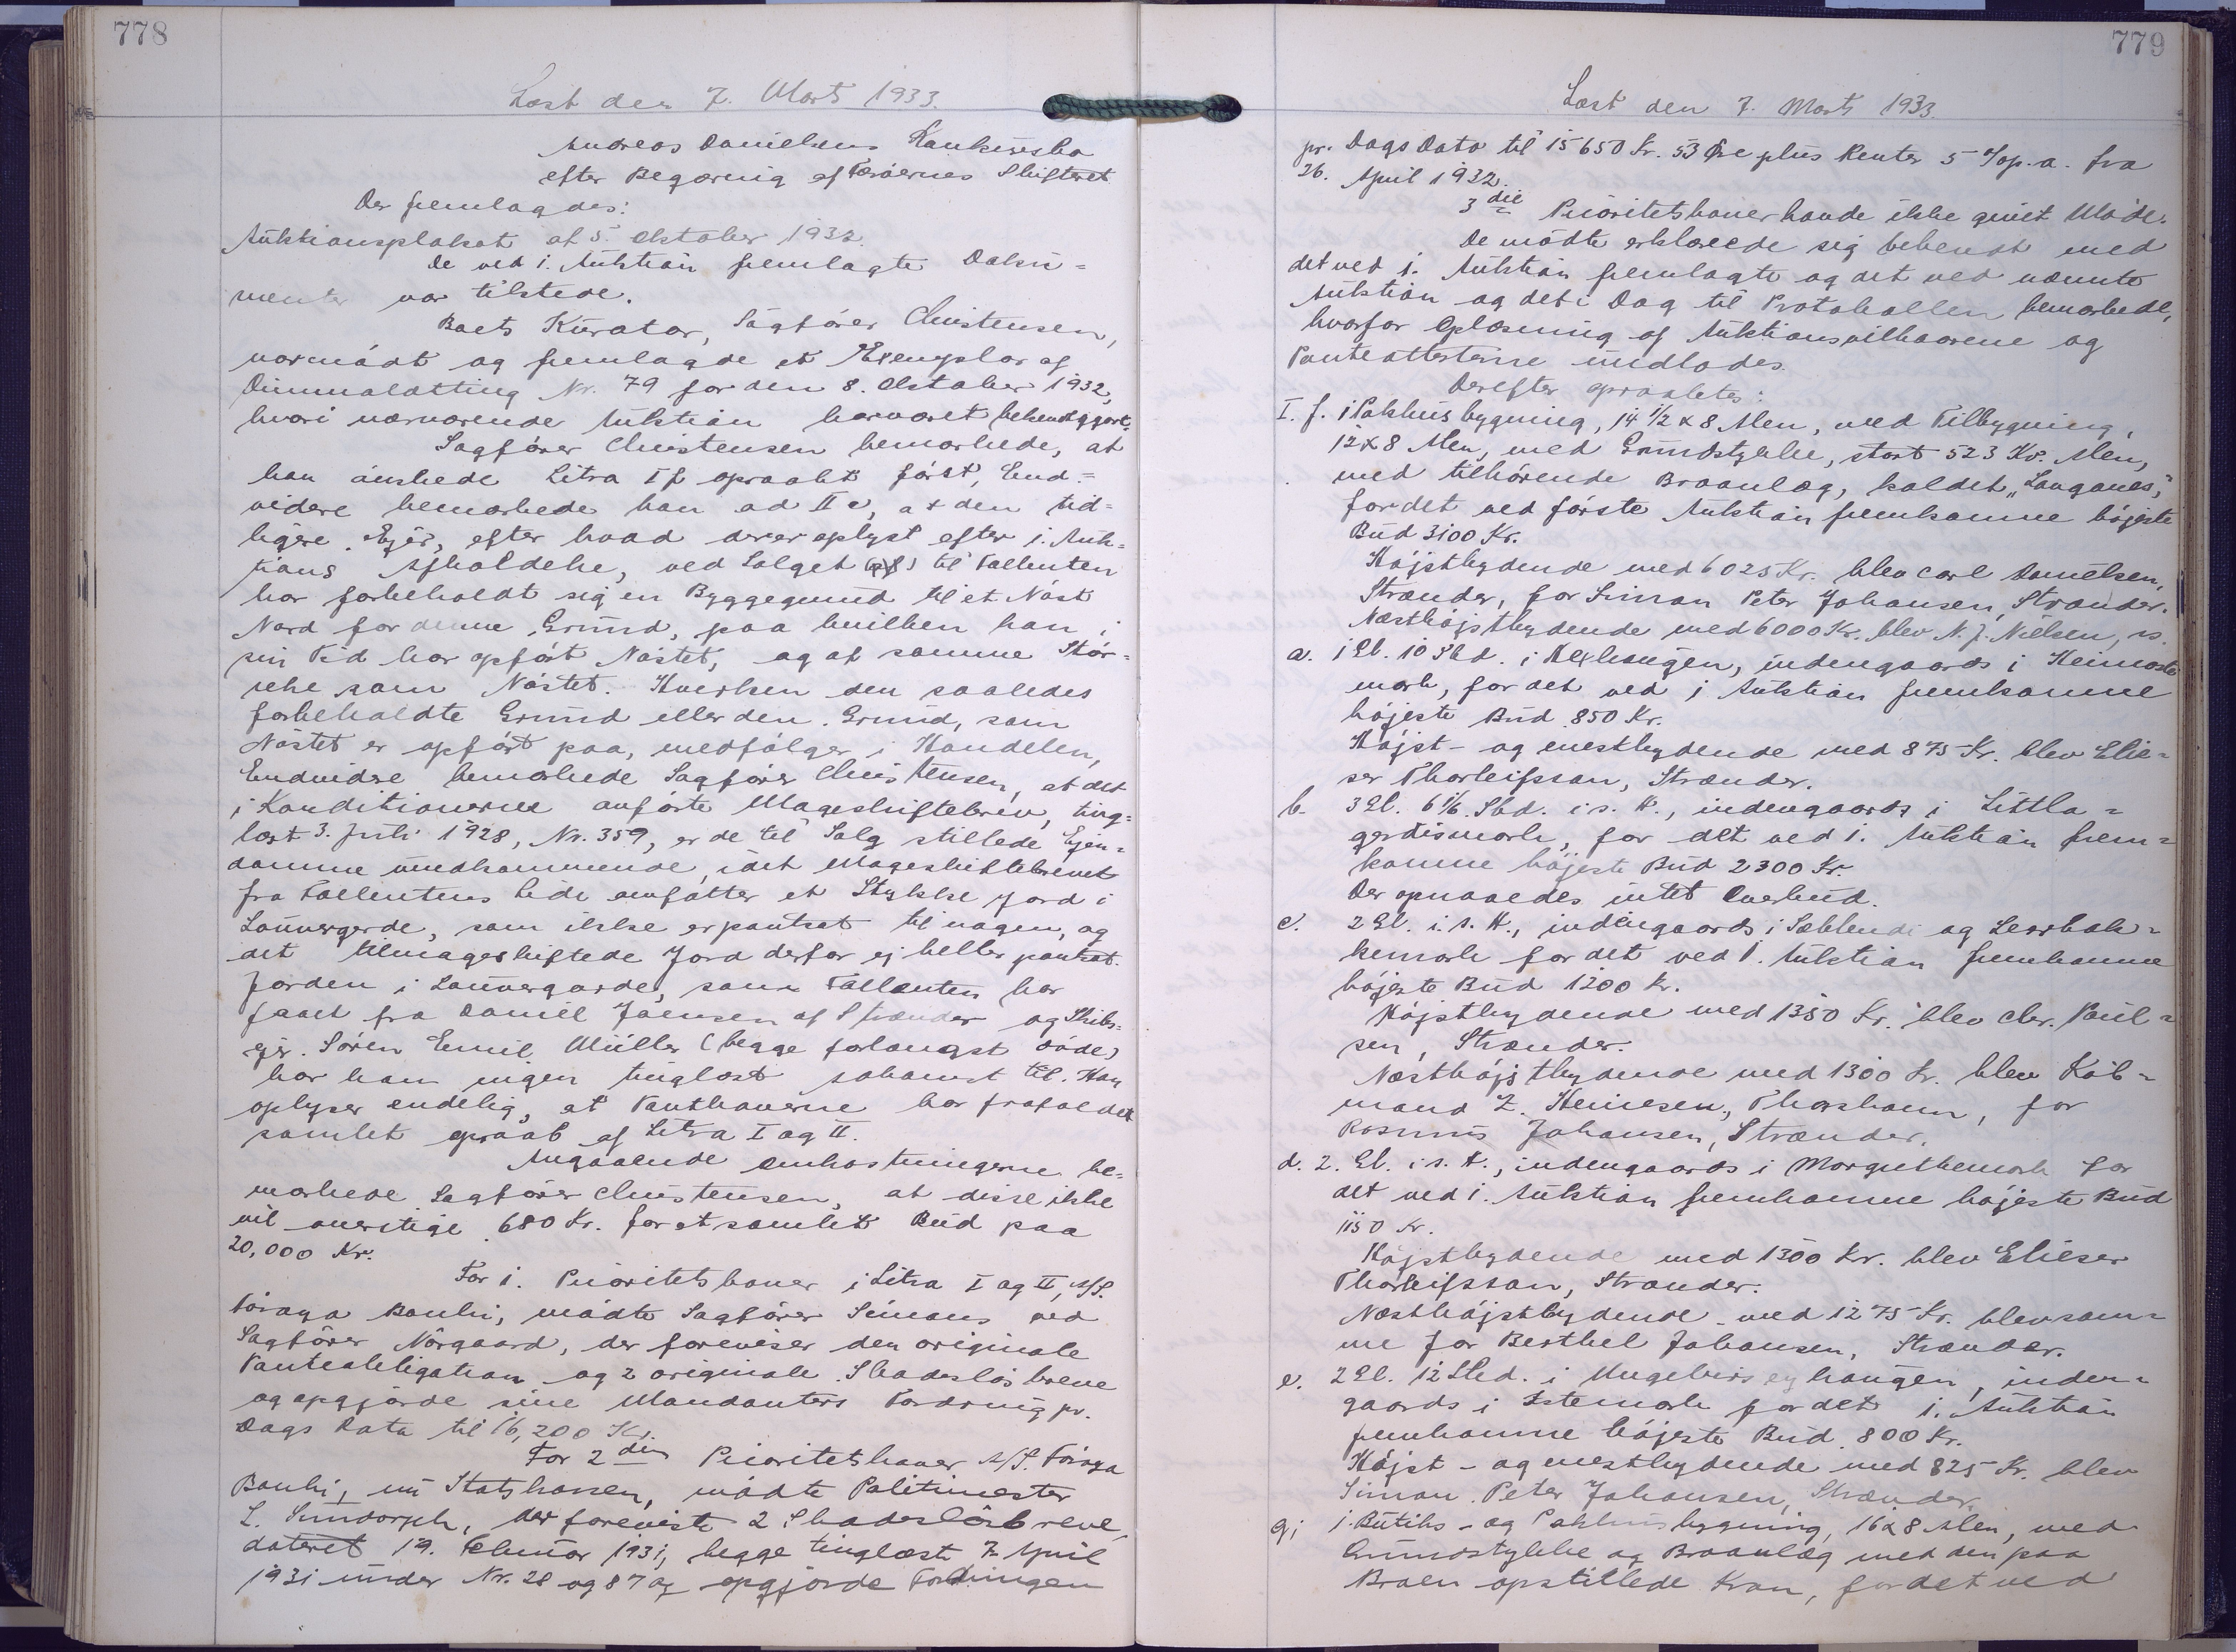 778
Læst den 7. Marts 1933.
Andreas Danielsens Konkursbo
efter Begæring af Færøernes Skifteret
Der fremlagdes:
Auktionsplakat af 5. Oktober 1932.
De ved 1. Auktion fremlagte Doku=
menter var tilstede.
Boets Kurator, Sagfører Christensen,
var mødt og fremlagde et Exemplar af
Dimmalætting Nr. 79 for den 8. Oktober 1932,
hvori nærværende Auktion har været bekendtgjort.
Sagfører Christensen bemærkede, at
han ønskede Litra I f opraabt først, End=
videre bemærkede han ad II c, at den tid=
ligere Ejer, efter hvad der er oplyst efter 1. Auk=
tions Afholdelse, ved Salget til Fallenten
har forbeholdt sig en Byggegrund til et Nøst
Nord for denne Grund, paa hvilken han i
sin Tid har opført Nøstet, og af samme Stør=
relse som Nøstet. Hverken den saaledes
forbeholdte Grund eller den Grund, som
Nøstet er opført paa, medfølger i Handelen,
Endvidere bemærkede Sagfører Christensen, at det
i Konditionerne anførte Mageskiftebrev, ting=
læst 3. Juli 1928, Nr. 359, er de til Salg stillede Ejen=
domme uvedkommende, idet Mageskiftebrevet
fra Fallentens Side omfatter et Stykke Jord i
som ikke er pantsat til nogen, og
det tilmageskiftede Jord derfor ej heller pantsat.
Jorden i som Fallenten har
faaet fra Daniel Joensen af Strænder og Skibs=
ejer Søren Emil Müller (begge forlængst døde)
har han ingen tinglæst Adkomst til. Han
oplyser endelig, at Panthaverne har frafaldet
samlet Opraab af Litra I og II.
Angaaende Omkostningerne be=
mærkede Sagfører Christensen, at disse ikke
vil overstige 680 Kr. for et samlet Bud paa
20,000 Kr.
For 1. Prioritetshaver i Litra I og II, A/S.
Føroya Banki, mødte Sagfører Simons ved
Sagfører Nørgaard, der foreviser den originale
Panteobligation og 2 originale Skadesløsbreve
og opgjorde sine Mandanters Fordring pr.
Dags Dato til 16,200 Kr.
For 2den Prioritetshaver A/S. Føroya
Banki, nu Statskassen, mødte Politimester
L. Sundorph, der foreviste 2 Skadesløsbreve,
dateret 19. Februar 1931, begge tinglæst 7. April
1931 under Nr. 28 og 87 og opgjorde Fordringen
779
Læst den 7. Marts 1933.
pr. Dags Dato til 15650 Kr. 53 Øre plus Renter 5 % p.a. fra
26. April 1932.
3die Prioritetshaver havde ikke givet Møde.
De mødte erklærede sig bekendt med
det ved 1. Auktion fremlagte og det ved nævnte
Auktion og det i Dag til Protokollen bemærkede,
hvorfor Oplæsning af Auktionsvilkaarene og
Panteattesterne undlodes.
Derefter opraabtes:
I. f. 1 Pakhusbygning, 14 1/2 x 8 Alen, med Tilbygning,
12 x 8 Alen, med Grundstykke, stort 523 Kv. Alen,
med tilhørende Broanlæg, kaldet "Langanes,"
for det ved første Auktion fremkomne højeste
Bud 3100 Kr.
Højstbydende med 6025 Kr. blev Carl Danielsen,
Strænder, for Simon Peter Johansen, Strænder.
Næsthøjstbydende med 6000 Kr. blev N. J. Nielsen, s.s.
a. 1 Gl. 10 Skd. i indengaards i Heimaste
mark, for det ved 1 Auktion fremkomne
højeste Bud 850 Kr.
Højst- og enestbydende med 875 Kr. blev Elie=
ser Thorleifsson, Strænder.
b. 3 Gl. 6 1/6 Skd. i s. H., indengaards i Littla=
gerdismark, for det ved 1. Auktion frem=
komne højeste Bud 2300 Kr.
Der opnaaedes intet Overbud.
c. 2 Gl. i s. H., indengaards i og
kemark for det ved 1. Auktion fremkomne
højeste Bud 1200 Kr.
Højstbydende med 1350 Kr. blev Chr. Poul=
sen, Strænder.
Næsthøjstbydende med 1300 Kr. blev Køb=
mand Z. Heinesen, Thorshavn, for
Rasmus Johansen, Strænder.
d. 2. Gl. i s. H., indengaards i Margrethemark for
det ved 1. Auktion fremkomne højeste Bud
1150 Kr.
Højstbydende med 1300 Kr. blev Elieser
Thorleifsson, Strænder.
Næsthøjstbydende med 1275 Kr. blev sam=
me for Berthel Johansen, Strænder.
e. 2 Gl. 12 Skd. i inden=
gaards i for det 1. Auktion
fremkomne højeste Bud 800 Kr.
Højst- og enestbydende med 825 Kr. blev
Simon Peter Johansen, Strænder.
g; 1 Butiks- og Pakhusbygning, 16 x 8 Alen, med
Grundstykke og Broanlæg med den paa
Broen opstillede Kran, for det ved